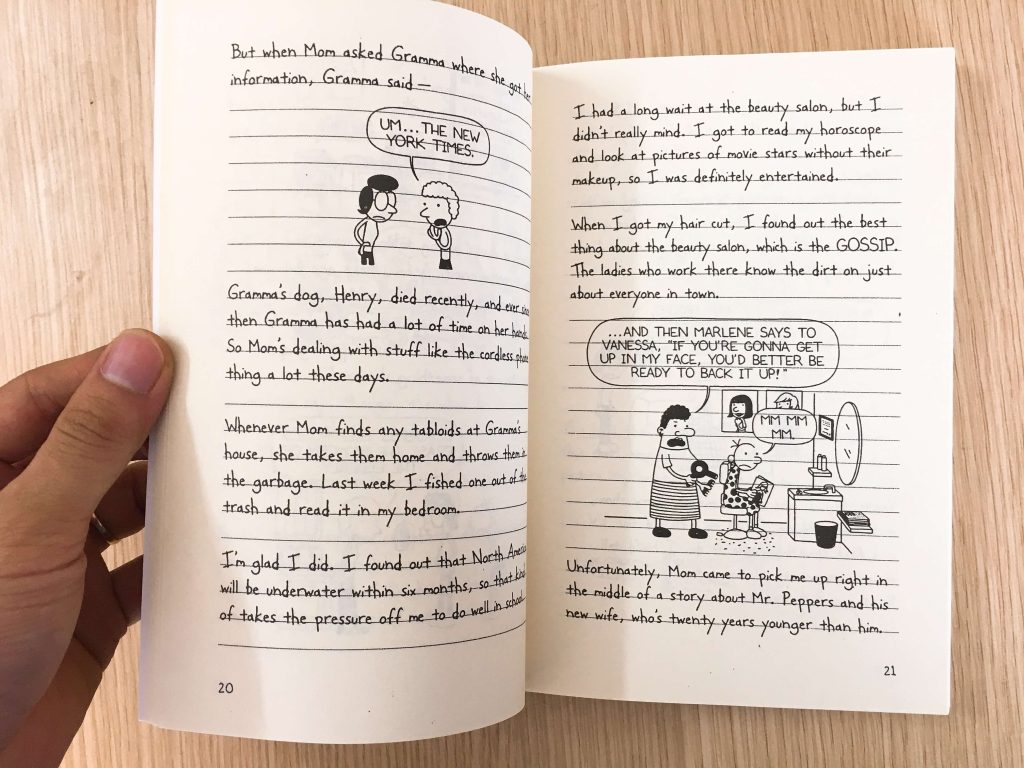 But when Mom asked Gramma where she got her
information, Gramma said —
UM...THE NEW
YORK TIMES.
Gramma's dog, Henry, died recently, and ever since
then Gramma has had a lot of time on her hands.
So Mom's dealing with stuff like the cordless phone
thing a lot these days.
Whenever Mom finds any tabloids at Gramma's
house, she takes them home and throws them in
the garbage. Last week I fished one out of the
trash and read it in my bedroom.
I'm glad I did. I found out that North America
will be underwater within six months, so that kind
of takes the pressure off me to do well in school.
20
I had a long wait at the beauty salon, but I
didn't really mind. I got to read my horoscope
and look at pictures of movie stars without their
makeup, so I was definitely entertained.
When I got my hair cut, I found out the best
thing about the beauty salon, which is the GOSSIP.
The ladies who work there know the dirt on just
about everyone in town.
...AND THEN MARLENE SAYS TO
VANESSA, "IF YOU'RE GONNA GET
UP IN MY FACE, YOU'D BETTER BE
READY TO BACK IT UP!"
MM MM
MM.
Unfortunately, Mom came to pick me up right in
the middle of a story about Mr. Peppers and his
new wife, who's twenty years younger than him.
21